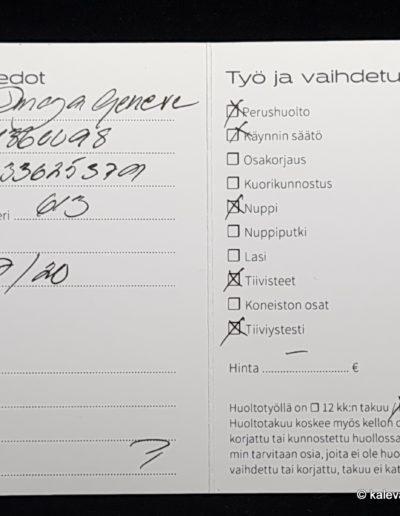 edot
Omega Geneve
1360098
33625379
eri 613
/20
Työ ja vaihdetu
Perushuolto
Käynnin säätö
Osakorjaus
Kuorikunnostus
Nuppi
Nuppiputki
Lasi
Tiivisteet
Koneiston osat
Tiiviystesti
Hinta .................... €
Huoltotyöllä on ☐ 12 kk:n takuu /
Huoltotakuu koskee myös kellon o
korjattu tai kunnostettu huollossa
min tarvitaan osia, joita ei ole huo
vaihdettu tai korjattu, takuu ei kat
© kaleva